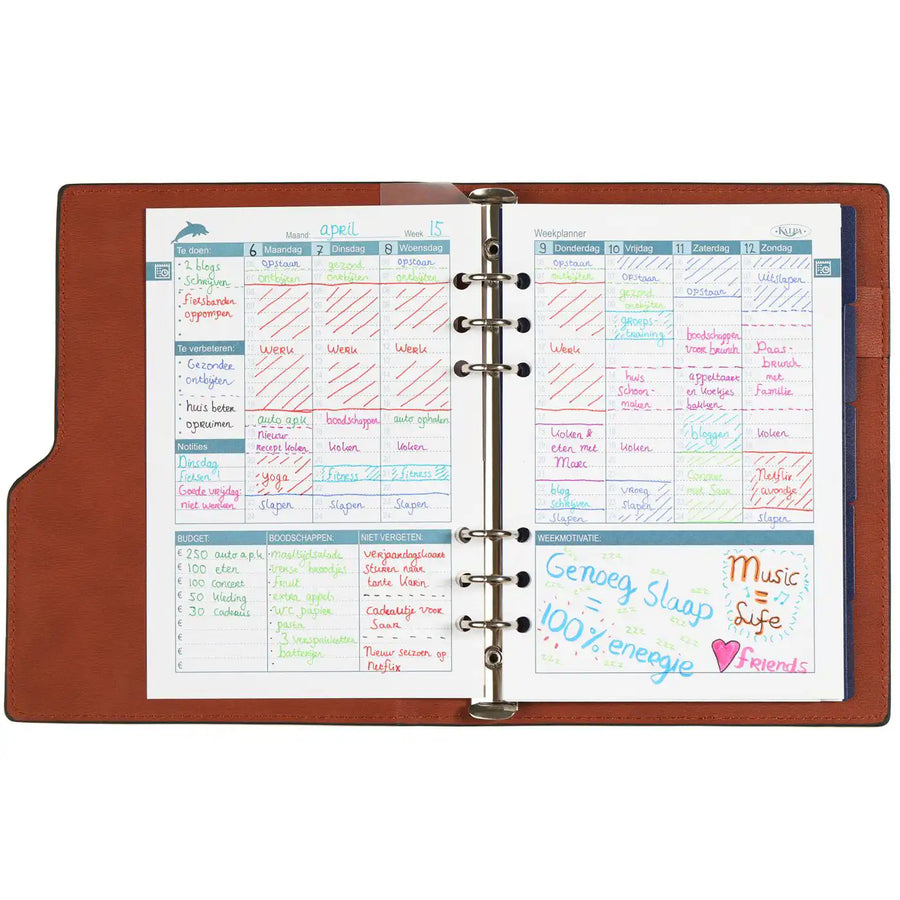 Maand: april Week 15
Te doen:
2 blogs
schrijven
fietsbanden
oppompen
Te verbeteren:
Gezonder
ontbijten
huis beter
opruimen
Notities
Dinsdag
fietsen
Goede vrijdag:
niet werken
6 Maandag
opstaan
ontbijten
WERK
auto apk
nieuw
recept koken
yoga
Slapen
7 Dinsdag
gezond
ontbijten
WERK
boodschappen
koken
fitness
Slapen
8 Woensdag
opstaan
ontbijten
WERK
auto ophalen
koken
fitness
Slapen
BUDGET:
€ 250 auto apk
€ 100 eten
€ 100 concert
€ 50 kleding
€ 30 cadeaus
€
€
€
€
BOODSCHAPPEN:
maaltijdsalade
verse broodjes
fruit
extra appels
wc papier
pasta
3 verspakketten
batterijen
NIET VERGETEN:
verjaardagskaart
sturen naar
tante Karin
Cadeautje voor
Saar
Nieuw seizoen op
Netflix
Weekplanner
KALPA
9 Donderdag
opstaan
ontbijten
WERK
koken &
eten met
Marc
blog
schrijven
Slapen
10 Vrijdag
opstaan
gezond
ontbijten
groeps-
training
huis
schoon-
maken
koken
vroeg
slapen
11 Zaterdag
opstaan
boodschappen
voor brunch
appeltaart
en koekjes
bakken
bloggen
Concert
met Saar
12 Zondag
Uitslapen
Paas-
brunch
met
Familie
koken
Netflix
avondje
Slapen
WEEKMOTIVATIE:
Genoeg Slaap
=
100% energie
zzz
Music
=
Life
friends